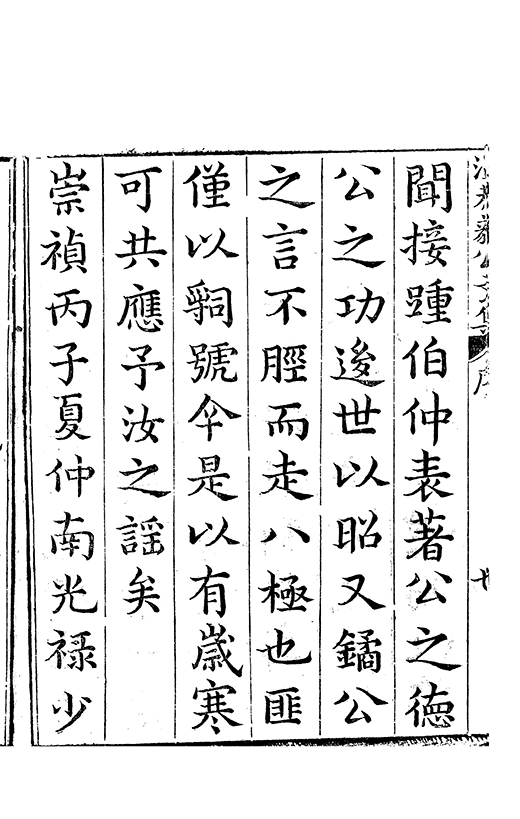 聞接踵伯仲表著公之德
公之功後世以昭又鐍公
之言不脛而走八極也匪
僅以嗣號伞是以有歲寒
可共應予汝之謡矣
崇禎丙子夏仲南光禄少